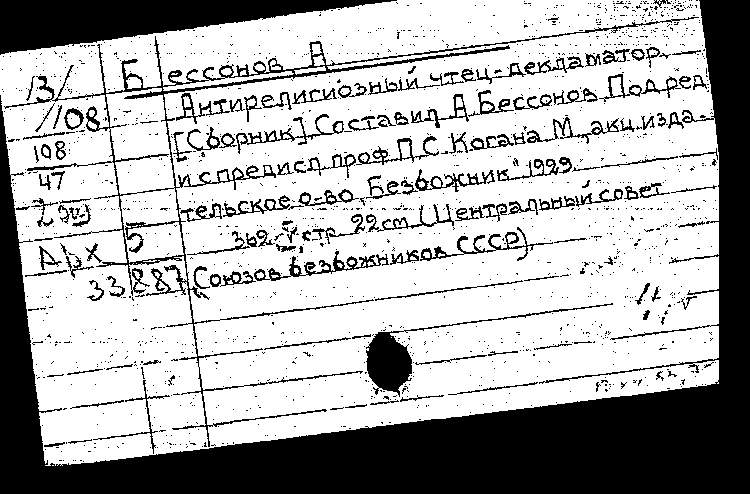 13/
/108
108
47
2 экз
Арх Б
33887
Бессонов, А.
Антирелигиозный чтец-декламатор.
[Сборник]. Составил А. Бессонов. Под ред
и с предисл. проф. П. С. Когана. М., акц. изда-
тельское о-во „Безбожник" 1929.
362, V, стр. 22 см. (Центральный совет
Союзов безбожников СССР).